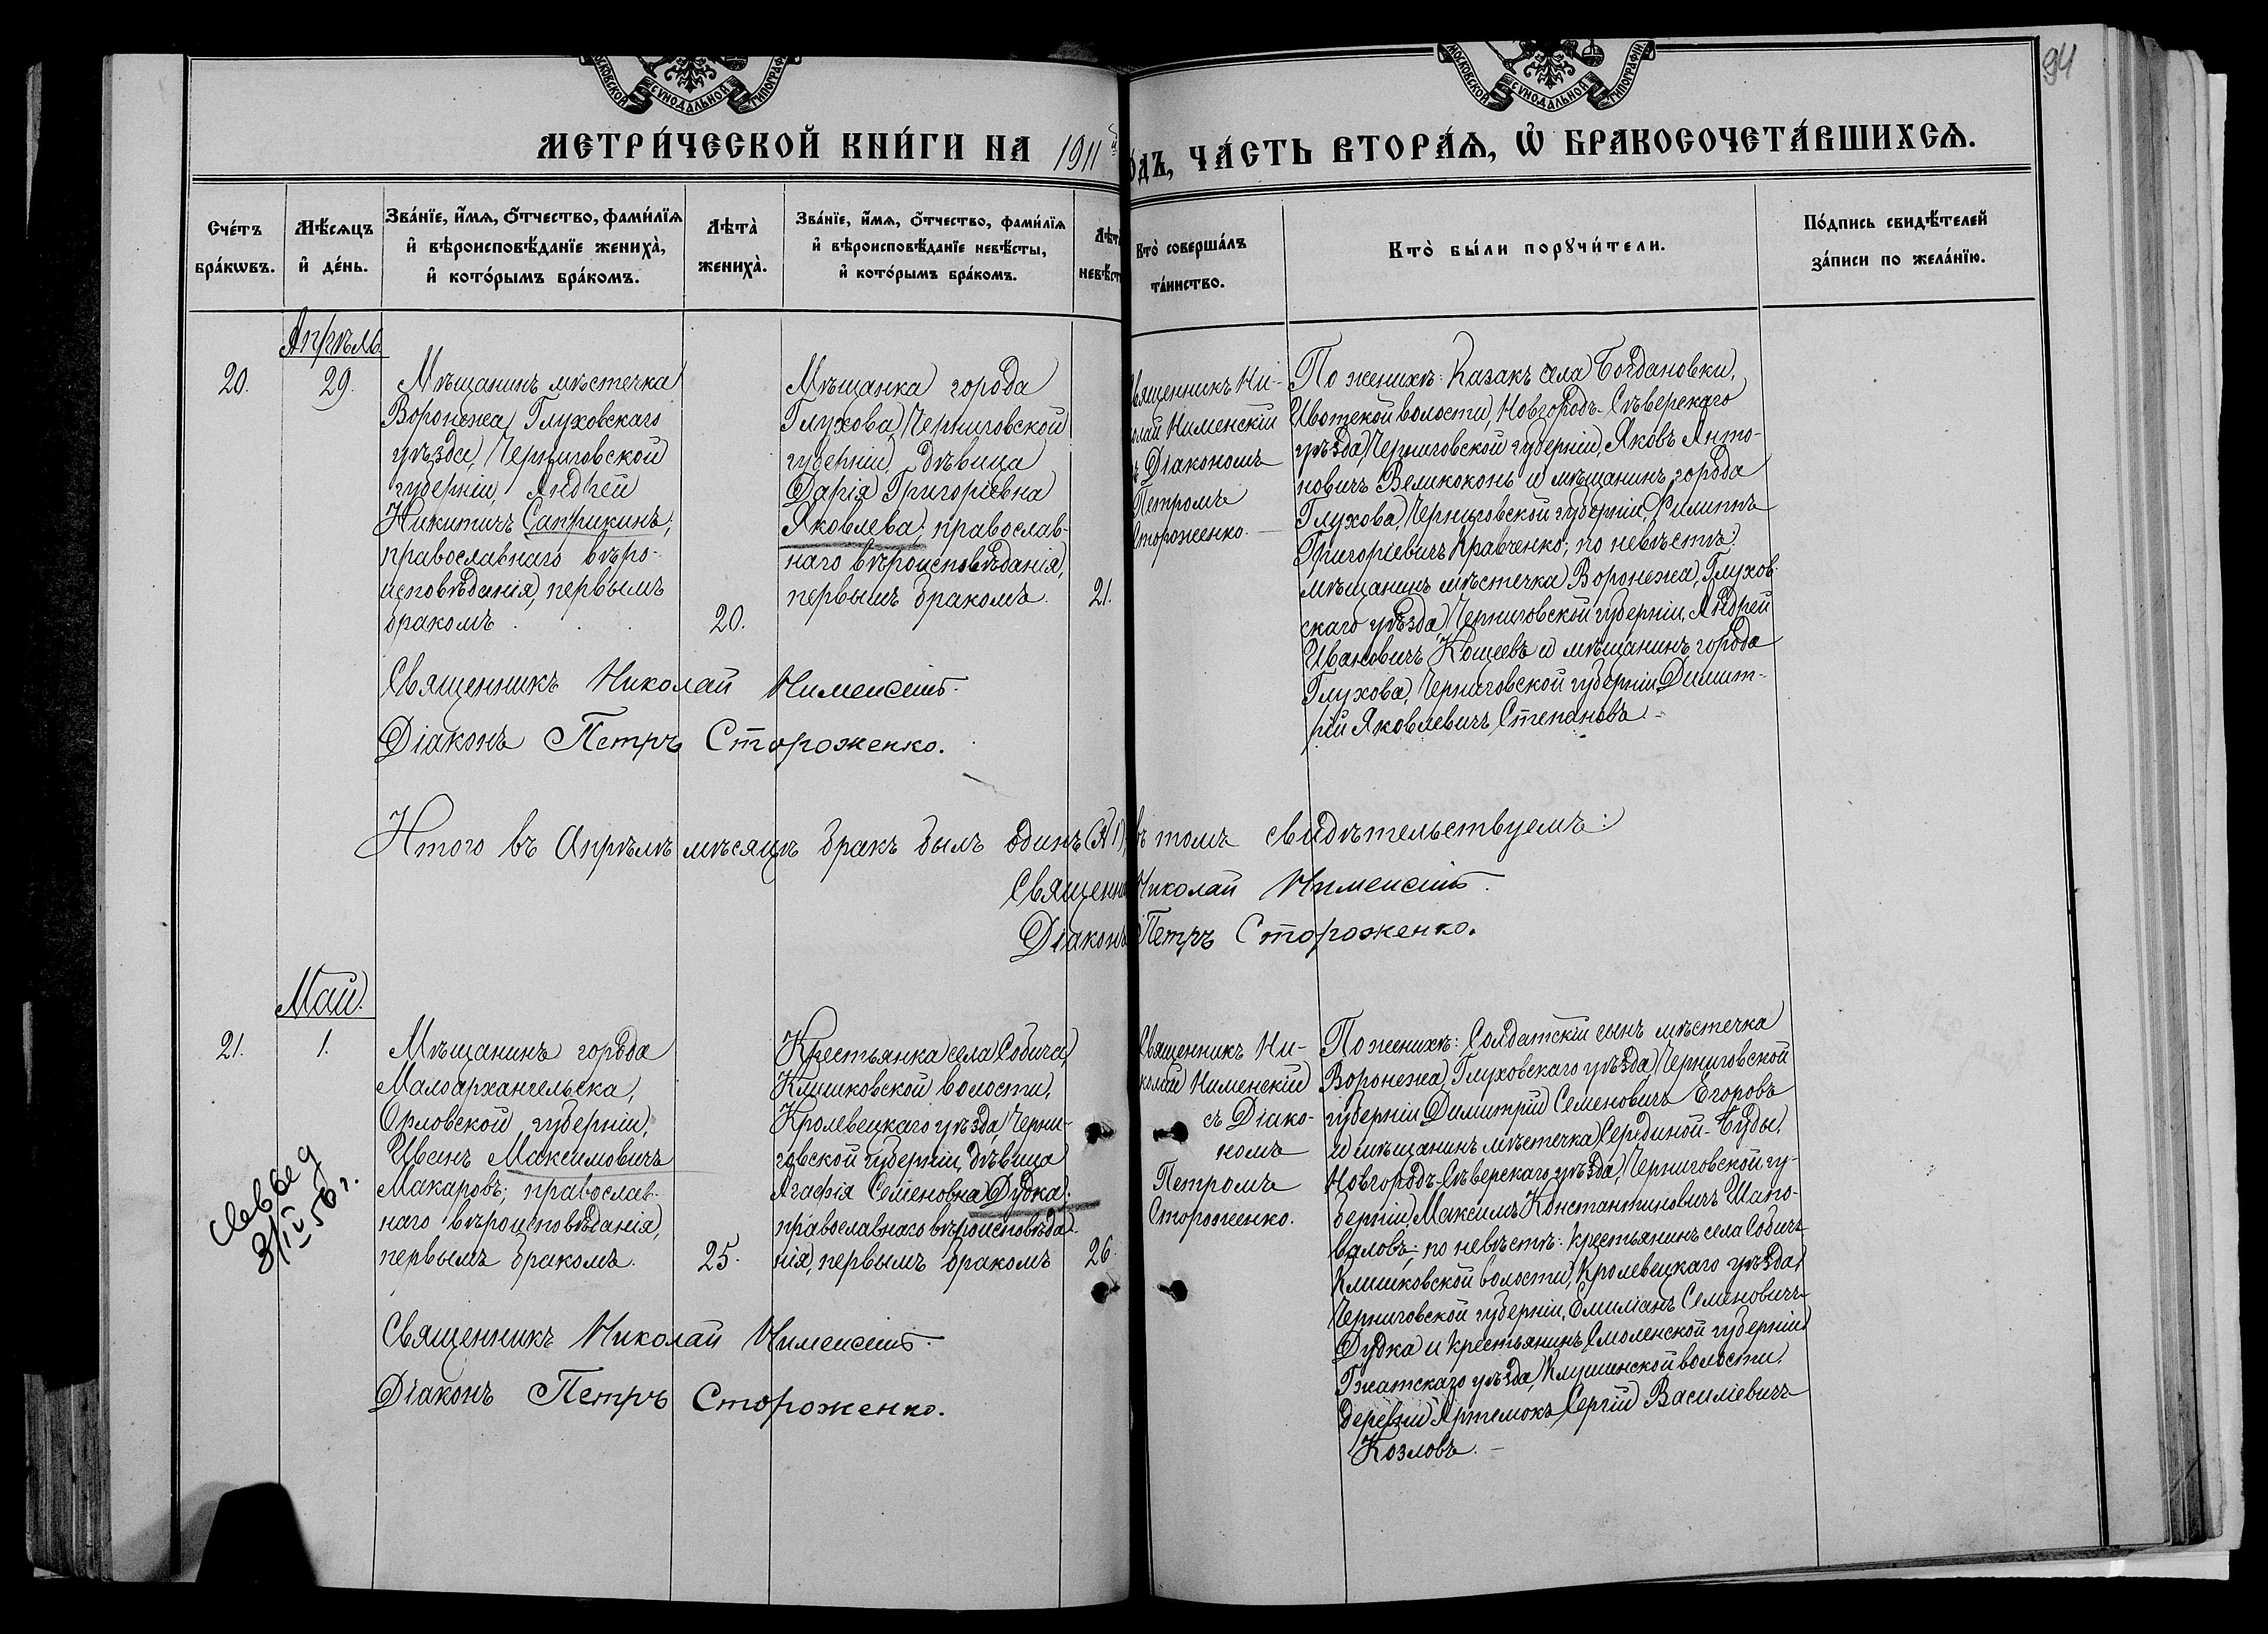 МОСКОВСКОЙ СУНОДАЛЬНОЙ ТИПОГРАФІИ
МОСКОВСКОЙ СУНОДАЛЬНОЙ ТИПОГРАФІИ
94
МЕТРИ́ЧЕСКОЙ КНИ́ГИ НА 1911й
О́ДЪ, ЧА́СТЬ ВТОРА́Ѧ, Ѡ҆ БРАКОСОЧЕТА́ВШИХСѦ.
Сче́тъ бра́кѡвъ.
Мѣ́сѧцъ и҆ де́нь.
Зва́нїе, и҆́мѧ, ѻ҆́тчество, фами́лїѧ
и҆ вѣроисповѣ́данїе жениха̀,
и҆ кото́рымъ бра́комъ.
Лѣта̀ жениха̀.
Зва́нїе, и҆́мѧ, ѻ҆́тчество, фами́лїѧ
и҆ вѣроисповѣ́данїе невѣ́сты,
и҆ кото́рымъ бра́комъ.
Лѣт
невѣ́ст
Кто̀ соверша́лъ
та́инство.
Кто̀ бы́ли порꙋчи́тели.
По́дпись свидѣ́телей
за́писи по жела́нїю.
Апрѣль.
20.
29.
Мѣщанинъ мѣстечка
Воронежа, Глуховскаго
уѣзда, Черниговской
губерніи, Андрей
Никитичъ Саприкинъ;
православнаго вѣро-
исповѣданія, первымъ
бракомъ
20.
Мѣщанка города
Глухова, Черниговской
губерніи, дѣвица
Дарія Григоріевна
Яковлева; православ-
наго вѣроисповѣданія,
первымъ бракомъ.
21.
вященникъ Ни-
олай Нименскій
ъ Діакономъ
Петромъ
Стороженко. —
По женихѣ: Казакъ села Богдановки,
Ивотской волости, Новгородъ-Сѣверскаго
уѣзда, Черниговской губерніи, Яковъ Анто-
новичъ Великоконь и мѣщанинъ города
Глухова, Черниговской губерніи, Филиппъ
Григоріевичъ Кравченко; по невѣстѣ:
мѣщанинъ мѣстечка Воронежа, Глухов-
скаго уѣзда, Черниговской губерніи, Андрей
Ивановичъ Кощеевъ и мѣщанинъ города
Глухова, Черниговской губерніи Димит-
рій Яковлевичъ Степановъ. -
Священникъ Николай Нименскій.
Діаконъ Петръ Стороженко.
Итого въ Апрѣлѣ мѣсяцѣ бракъ былъ одинъ (№ 1), въ томъ свидѣтельствуемъ:
Священн Николай Нименскій.
Діаконъ Петръ Стороженко.
Май.
21.
1.
Мѣщанинъ города
Малоархангельска,
Орловской губерніи,
Иванъ Максимовичъ
Макаровъ; православ-
наго вѣроисповѣданія,
первымъ бракомъ.
25.
Крестьянка села Собича,
Клишковской волости,
Кролевецкаго уѣзда, Черни-
говской губерніи, дѣвица
Агафія Семеновна Дудка;
православнаго вѣроисповѣда-
нія, первымъ бракомъ
26.
Священникъ Ни-
колай Нименскій
съ Діако-
номъ
Петромъ
Стороженко.
По женихѣ: Солдатскій сынъ мѣстечка
Воронежа, Глуховскаго уѣзда, Черниговской
губерніи Димитрій Семеновичъ Егоровъ
и мѣщанинъ мѣстечка Серединой-Буды,
Новгородъ-Сѣверскаго уѣзда, Черниговской гу-
берніи, Максимъ Константиновичъ Шапо-
валовъ; по невѣстѣ: крестьянинъ села Собичъ
Клишковской волости, Кролевецкаго уѣзда,
Черниговской губерніи, Емиліанъ Семеновичъ
Дудка и крестьянинъ Смоленской губерніи
Гжатскаго уѣзда, Клушинской волости,
деревни Артемокъ Сергій Василіевичъ
Козловъ. —
3/IV 56 г.
Священникъ Николай Нименскій.
Діаконъ Петръ Стороженко.